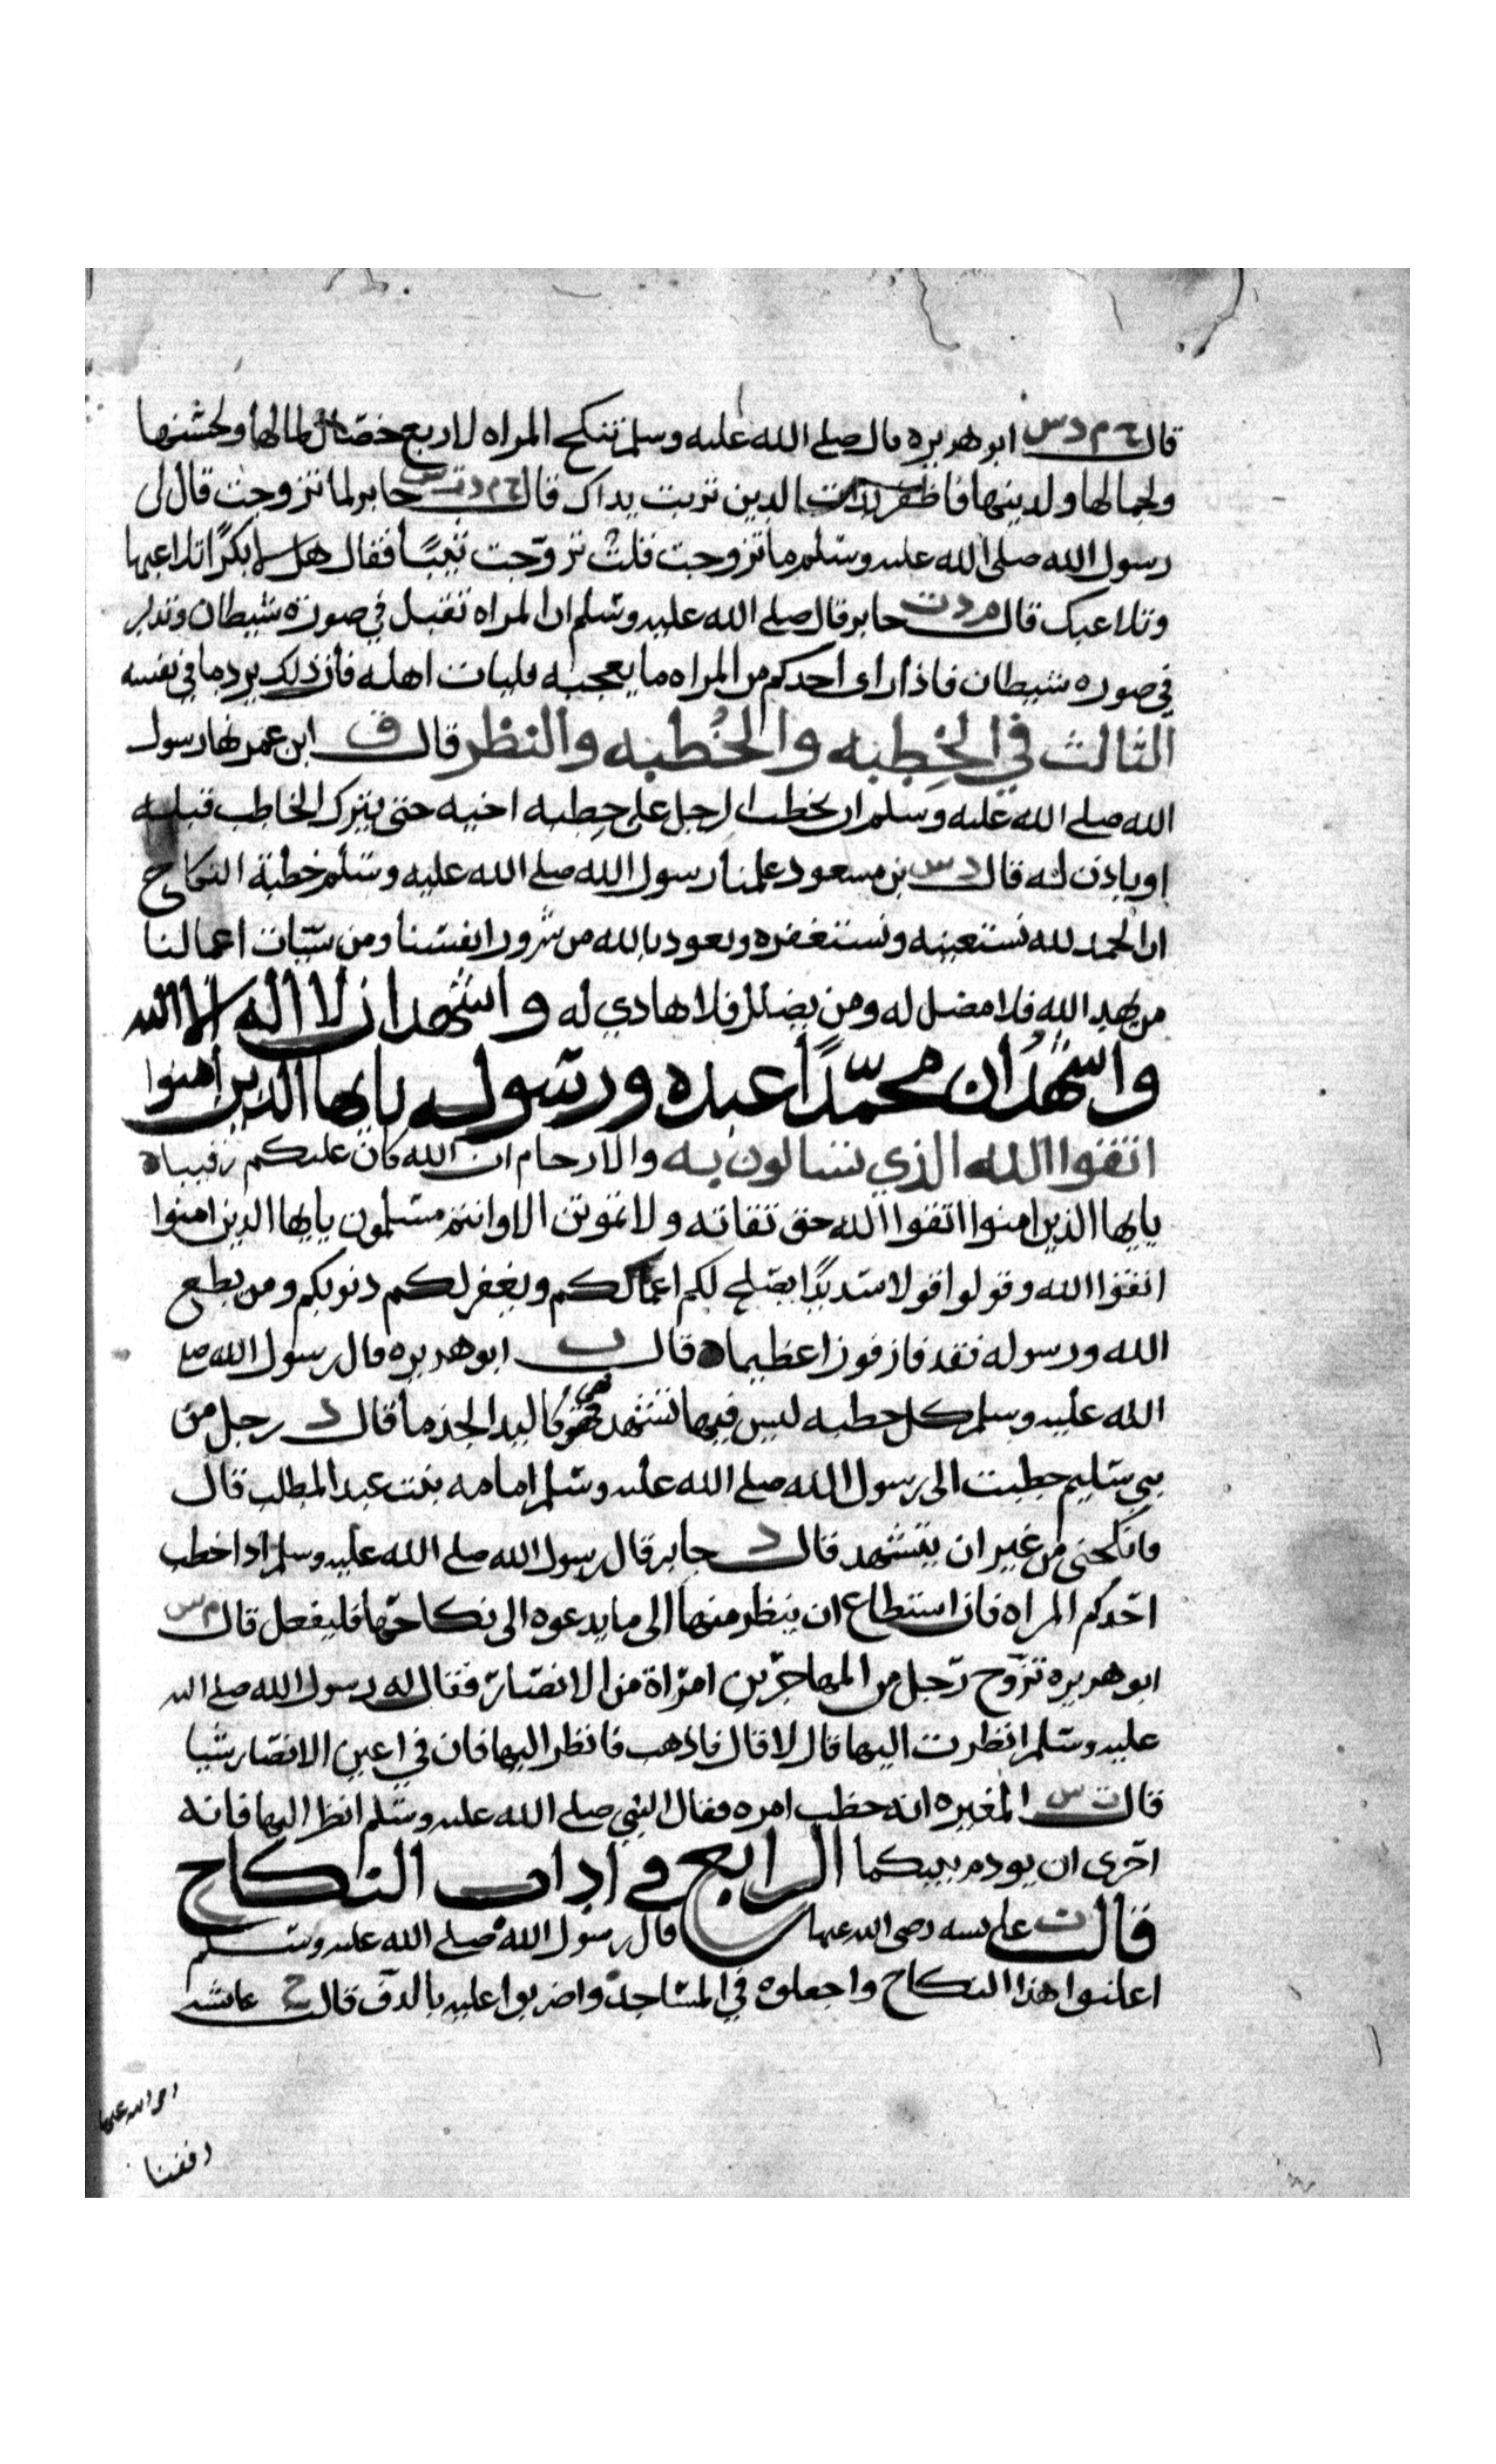 قال خ م د س ابو هريره قال صلى الله عليه وسلم تنكح المراه لاربع خصال لمالها ولحسنها
ولجمالها ولدينها فاظفر بذات الدين تربت يداك قال خ م د ت س جابر لما تزوجت قال لى
رسول الله صلى الله عليه وسلم ما تزوجت قلت تزوجت ثيبًا فقال هلا بكرًا تلاعبها
وتلاعبك قال م د ت جابر قال صلى الله عليه وسلم ان المراه تقبل في صورة شيطان وتدبر
في صوره شيطان فاذا راى احدكم من المراه ما يعجبه فليات اهله فان ذلك يرد ما في نفسه
الثالث في الخِطبه والخُطبه والنظر قال ق ابن عمر نها رسول
الله صلى الله عليه وسلم ان يخطب الرجل على خِطبه اخيه حتى يترك الخاطب قبله
او ياذن له قال د س بن مسعود علمنا رسول الله صلى الله عليه وسلم خطبة النكاح
ان الحمد لله نستعينه ونستغفره ونعوذ بالله من شرور انفسنا ومن سيّات اعمالنا
من يهد الله فلا مضل له ومن يضلل فلا هادي له واشهد ان لا اله الا الله
واشهدُ ان محمّدًا عبده ورسوله يايها الذين امنوا
اتقوا الله الذي تسالون به والارحام ان الله كان عليكم رقيبا ه
يايها الذين امنوا اتقوا الله حق تقاته ولا تموتن الا وانتم مسلمون يايها الذين امنوا
اتقوا الله وقولوا قولا سديدًا يصلح لكم اعمالكم ويغفر لكم ذنوبكم ومن يطع
الله ورسوله فقد فاز فوزا عظيما ه قال ت ابو هريره قال رسول الله صلى
الله عليه وسلم كل خطبه ليس فيها تشهد فهي كاليد الجذما قال د رجل من
بني سليم خطبت الى رسول الله صلى الله عليه وسلم امامه بنت عبد المطلب قال
فانكحنى من غير ان يتشهد قال د جابر قال رسول الله صلى الله عليه وسلم اذا خطب
احدكم المراه فان استطاع ان ينظر منها الى ما يدعوه الى نكاحها فليفعل قال م س
ابو هريره تزوّج رجل من المهاجرين امراة من الانصار فقال له رسول الله صلى الله
عليه وسلم انظرت اليها قال لا قال فاذهب فانظر اليها فان في اعين الانصار شيا
قال ت س المغيره انه خطب امره فقال النبي صلى الله عليه وسلم انظر اليها فانه
احرى ان يودم بينكما الرابع في اداب النكاح
قالت ت عايشه رضى الله عنها قال رسول الله صلى الله عليه وسلم
اعلنوا هذا النكاح واجعلوه في المساجد واضربوا عليه بالدف قالت خ عايشه
الله عنها